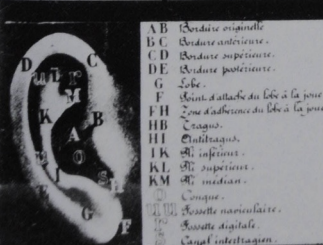 A B Bordure originelle
B C Bordure antérieure.
C D Bordure supérieure.
D E Bordure postérieure.
G Lobe.
F Point d'attache du lobe à la joue
F H Zone d'adhérence du lobe à la joue
H B Tragus.
H I Antitragus.
I K Pli inférieur.
K L Pli supérieur.
K M Pli médian.
O Conque.
Fossette naviculaire.
Fossette digitale.
Canal intertragien.
D
C
M
K
B
A
O
I
E
G
F